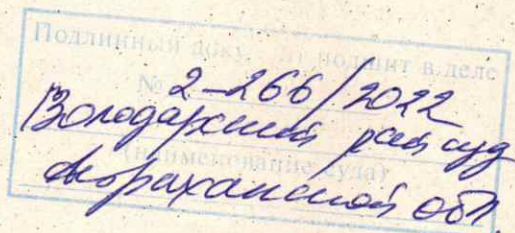 Подлинный доку подшит в деле
№ 2-266/2022
Володарский рай суд
(наименование суда)
Астраханской обл.